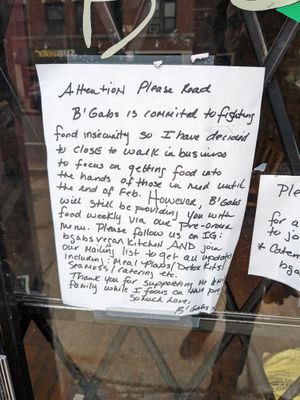 SUBWAY
Attention Please Read
B'Gabs is commited to fighting
food insicurity so I have decided
to close to walk in business
to focus on getting food into
the hands of those in need until
the end of Feb. However, B'Gabs
will still be providing you with
food weekly via our pre-order
menu. Please follow us on IG:
bgabsvegan kitchen AND join
our mailing list to get all updates
including: Meal plans/Detox kits/
Seamoss/catering etc.
Thank you for supporting the
family while I focus on this
So much Love,
B'Gabs
Ple
for a
to